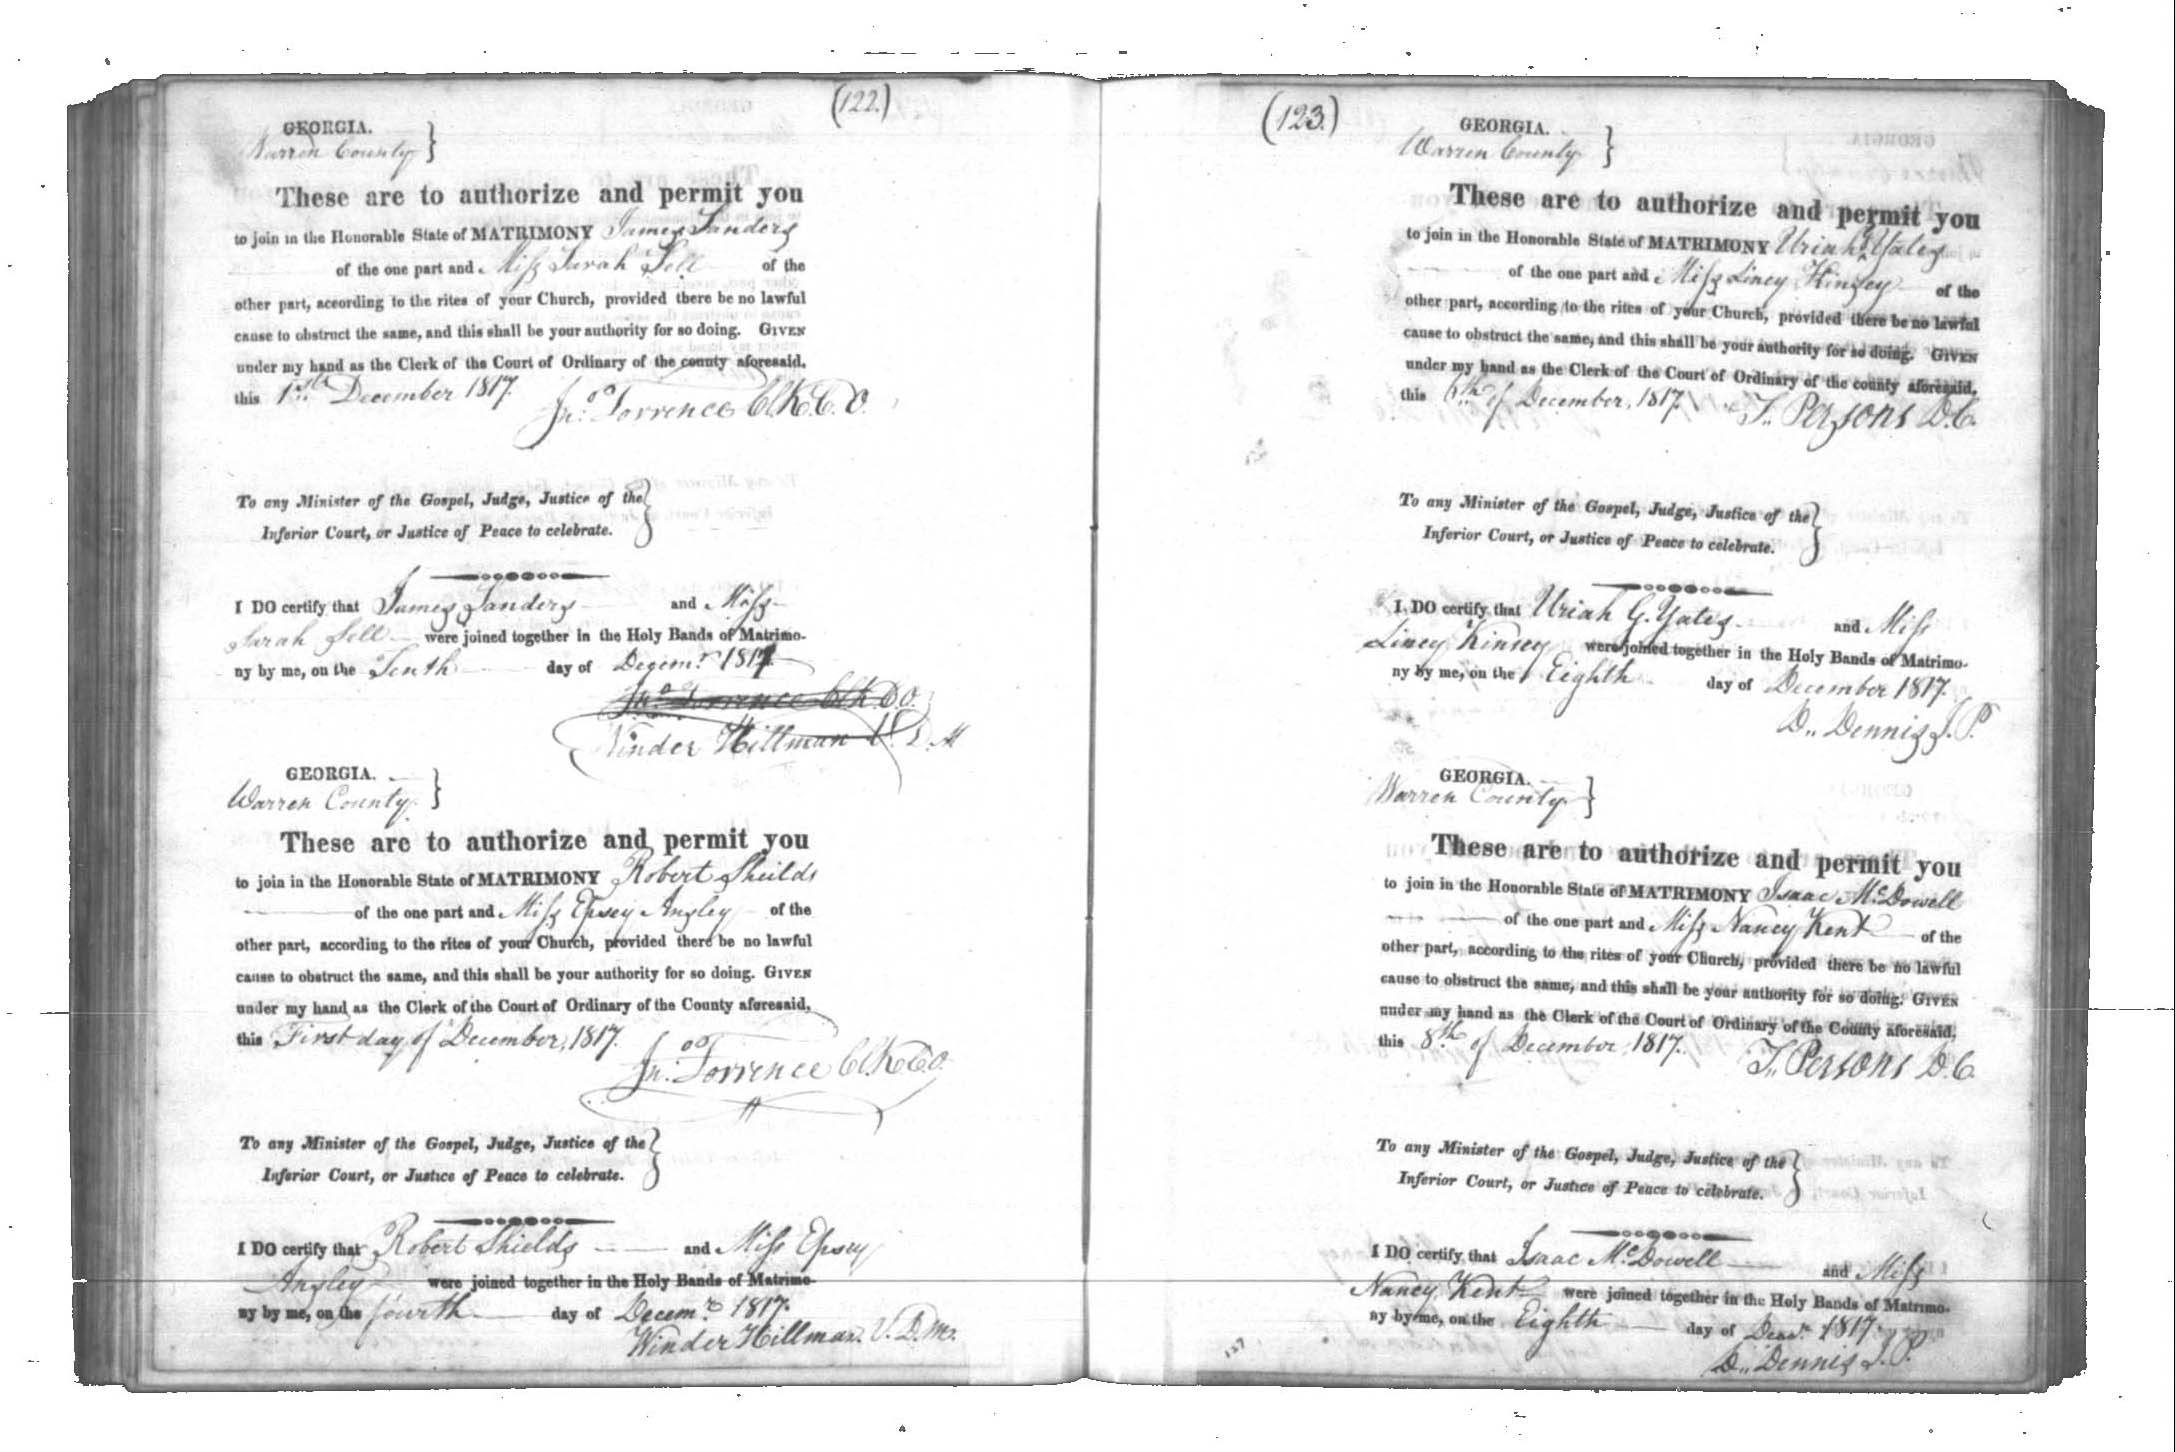 (122.)
GEORGIA.
Warren County }
These are to authorize and permit you
to join in the Honorable State of MATRIMONY James Sanders
of the one part and Miss Sarah Sell of the
other part, according to the rites of your Church, provided there be no lawful
cause to obstruct the same, and this shall be your authority for so doing. GIVEN
under my hand as the Clerk of the Court of Ordinary of the county aforesaid,
this 1st December 1817. Jno. Torrence Clk. C. O.
To any Minister of the Gospel, Judge, Justice of the
Inferior Court, or Justice of Peace to celebrate. }
I DO certify that James Sanders and Miss
Sarah Sell were joined together in the Holy Bands of Matrimo-
ny by me, on the Tenth day of Decemr. 1817
Jno. Torrence Clk C.O.
Winder Hillman V. D. M
GEORGIA.
Warren County. }
These are to authorize and permit you
to join in the Honorable State of MATRIMONY Robert Sheilds
of the one part and Miss Epsey Ansley of the
other part, according to the rites of your Church, provided there be no lawful
cause to obstruct the same, and this shall be your authority for so doing. GIVEN
under my hand as the Clerk of the Court of Ordinary of the County aforesaid,
this First day of December, 1817. Jno. Torrence Clk C.O.
To any Minister of the Gospel, Judge, Justice of the
Inferior Court, or Justice of Peace to celebrate. }
I DO certify that Robert Shields and Miss Epsey
Ansley were joined together in the Holy Bands of Matrimo-
ny by me, on the fourth day of Decemr. 1817.
Winder Hillman. V. D. M.
(123.)
GEORGIA.
Warren County }
These are to authorize and permit you
to join in the Honorable State of MATRIMONY Uriah G. Yates
of the one part and Miss Liney Kinsey of the
other part, according to the rites of your Church, provided there be no lawful
cause to obstruct the same, and this shall be your authority for so doing. GIVEN
under my hand as the Clerk of the Court of Ordinary of the county aforesaid,
this 6th of December, 1817. T. Persons D.C.
To any Minister of the Gospel, Judge, Justice of the
Inferior Court, or Justice of Peace to celebrate. }
I DO certify that Uriah G. Yates and Miss
Liney Kinsey were joined together in the Holy Bands of Matrimo-
ny by me, on the Eighth day of December 1817.
D.. Dennis J. P.
GEORGIA.
Warren County }
These are to authorize and permit you
to join in the Honorable State of MATRIMONY Isaac McDowell
of the one part and Miss Nancy Kent of the
other part, according to the rites of your Church, provided there be no lawful
cause to obstruct the same, and this shall be your authority for so doing. GIVEN
under my hand as the Clerk of the Court of Ordinary of the County aforesaid,
this 8th of December, 1817. T.. Persons D.C.
To any Minister of the Gospel, Judge, Justice of the
Inferior Court, or Justice of Peace to celebrate. }
I DO certify that Isaac McDowell and Miss
Nancy Kent were joined together in the Holy Bands of Matrimo-
ny by me, on the Eighth day of Decr. 1817.
D.. Dennis J. P.